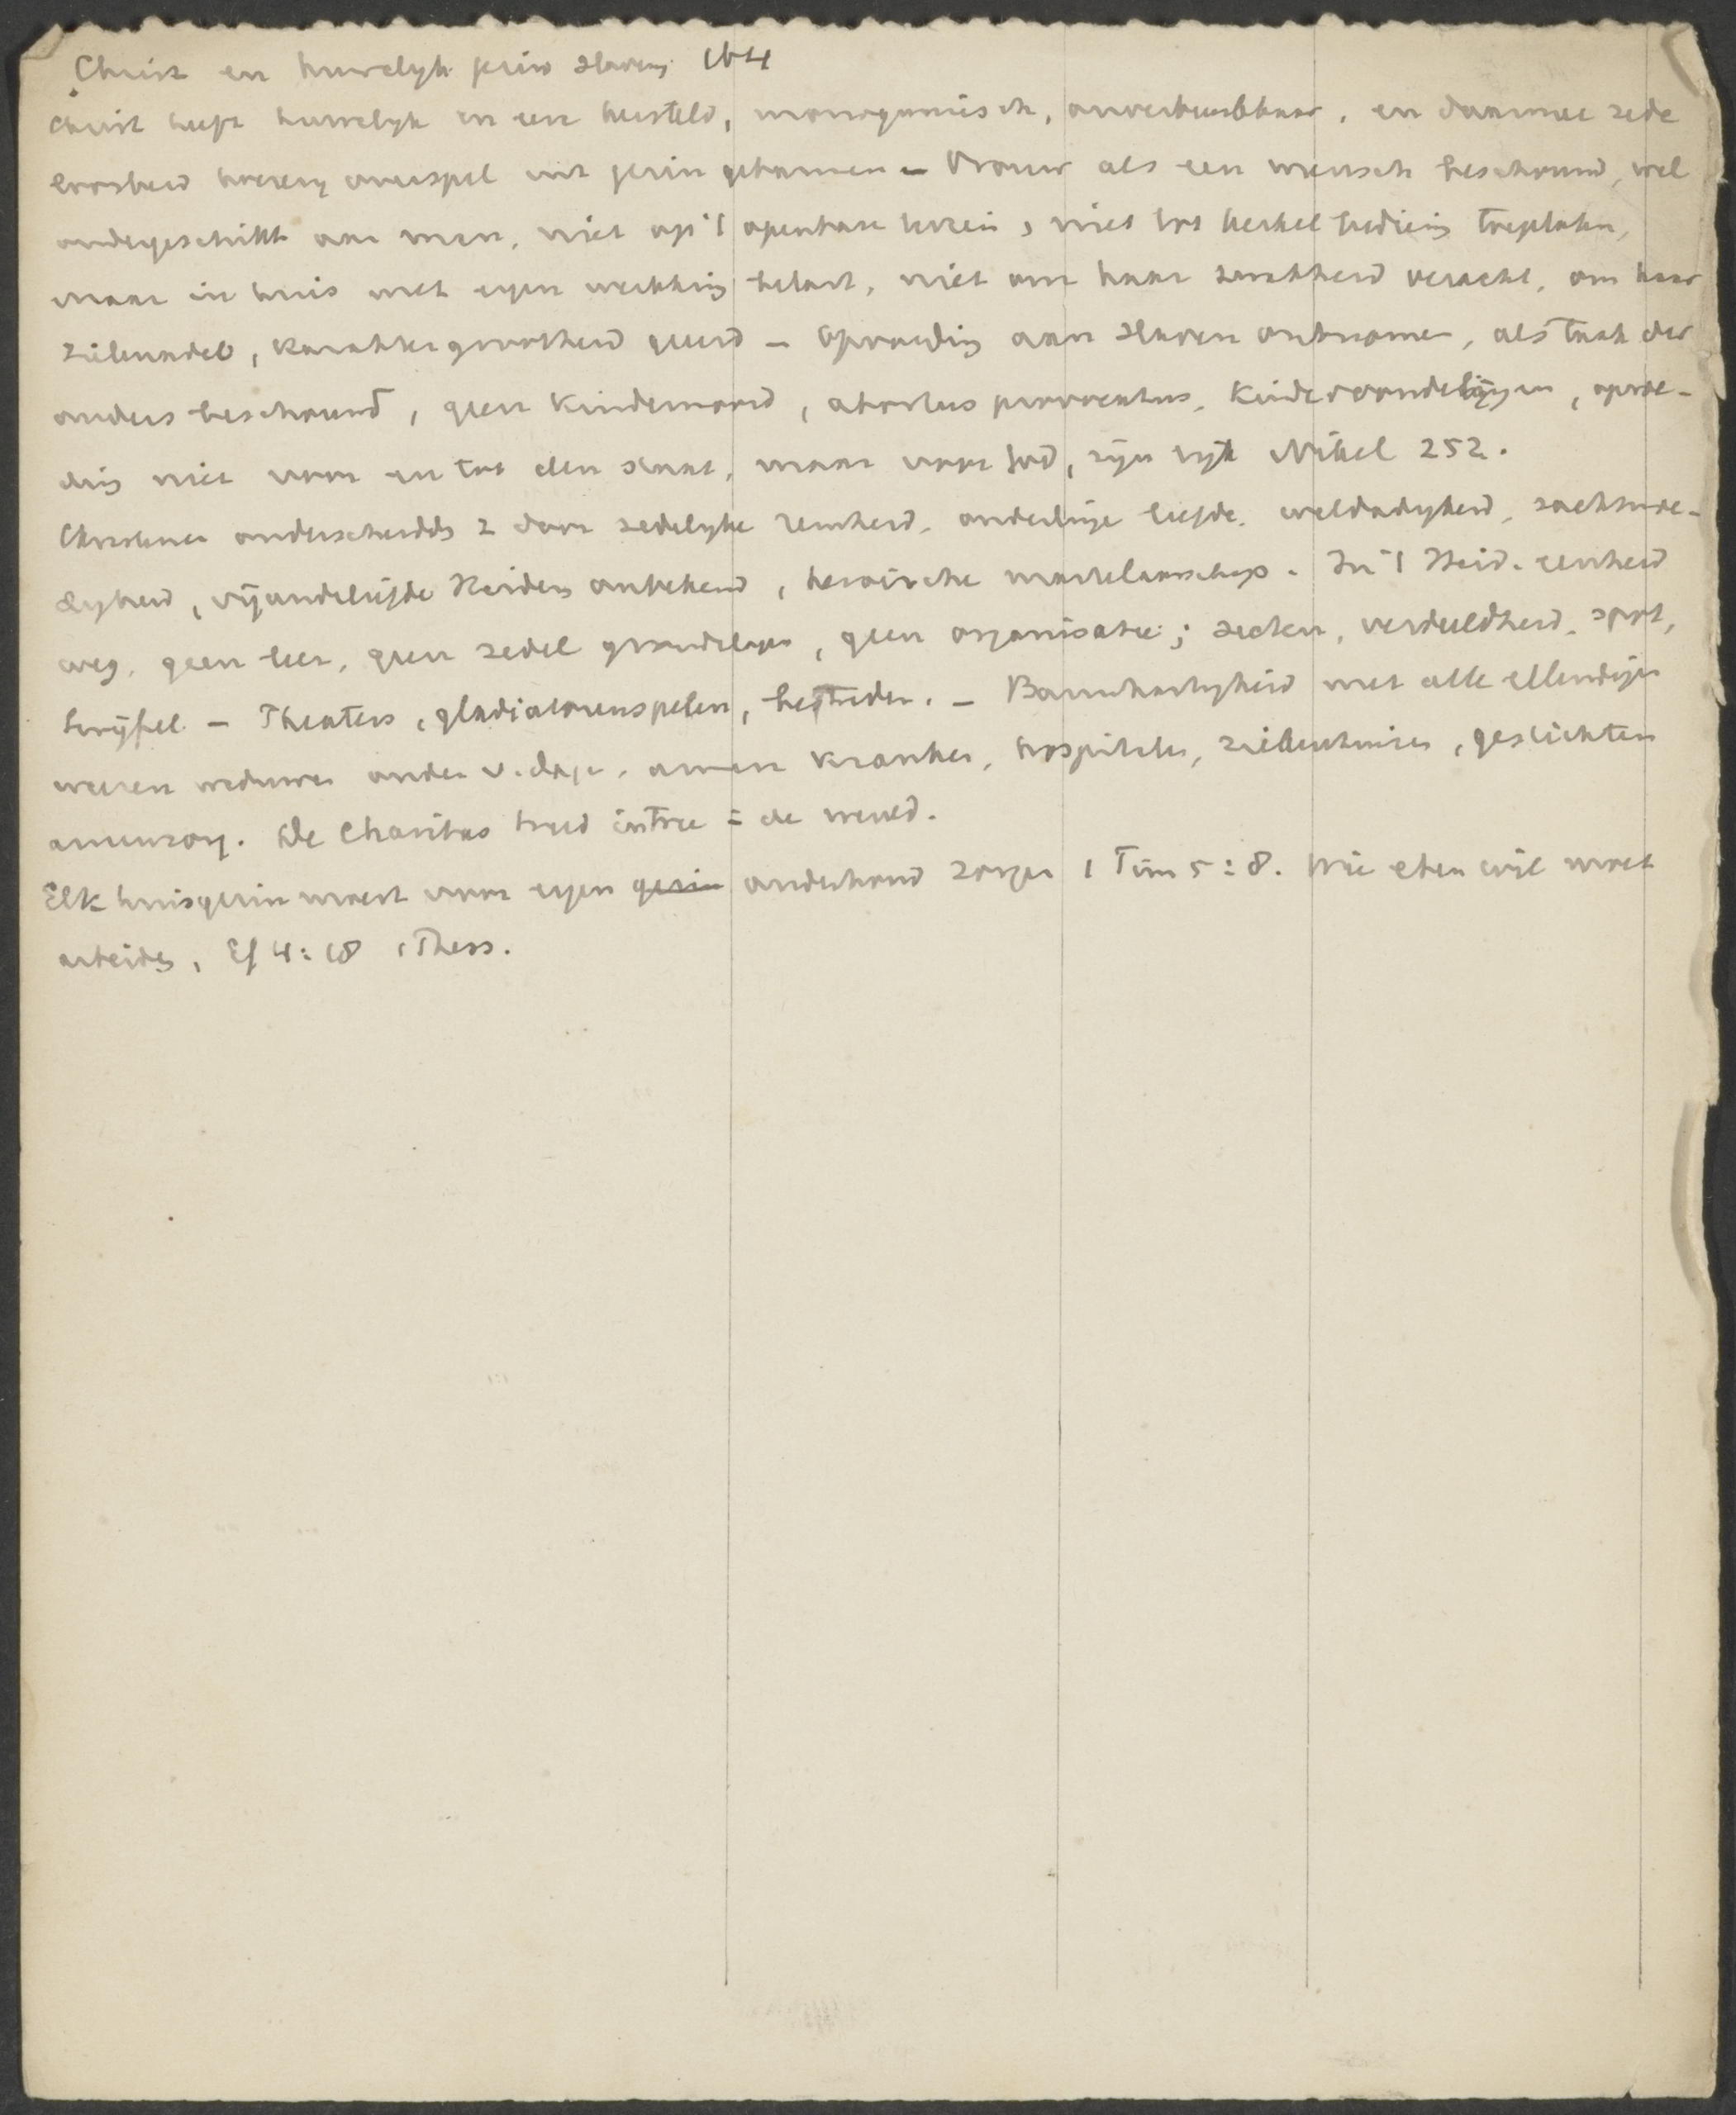 Christ en huwelyk gezin Slaven 164
Christ heeft huwelyk in eere hersteld, monogamisch, onverbreekbaar, en daarmee zede
loosheid hoerery overspel uit gezin gebannen – Vrouw als een mensch beschouwd, wel
ondergeschikt aan man, niet op 't openbare terrein, niet tot kerkel bediening toegelaten,
maar in huis met eigen werkkring belast, niet om haar zwakheid veracht, om haar
zieleadel, karaktergrootheid geeerd – Opvoeding aan slaven ontnomen, als taak der
ouders beschouwd, geen kindermoord, abortus procuratus, kindervondelingen, opvoe-
ding niet voor en tot den staat, maar voor God, zyn ryk Nikel 252.
Christenen onderscheidden z door zedelyke reinheid, onderlinge liefde, weldadigheid, zachtmoe-
digheid, vijandsliefde Heiden onbekend, heroïsche martelaarschap. In 't Heid. eenheid
weg, geen leer, geen zedel grondslagen, geen organisatie; secten, verdeeldheid, spot,
twijfel – Theaters, gladiatorenspelen, bestreden. – Barmhartigheid met alle ellendigen
weezen weduwen ouden v. dagen, armen kranken, hospitalen, ziekenhuizen, gestichten
armenzorg. De Charitas treed intree i de wereld.
Elk huisgezin moest voor eigen gezin onderhoud zorgen 1 Tim 5:8. Wie eten wil moet
arbeiden, Ef 4:28 1 Thess.